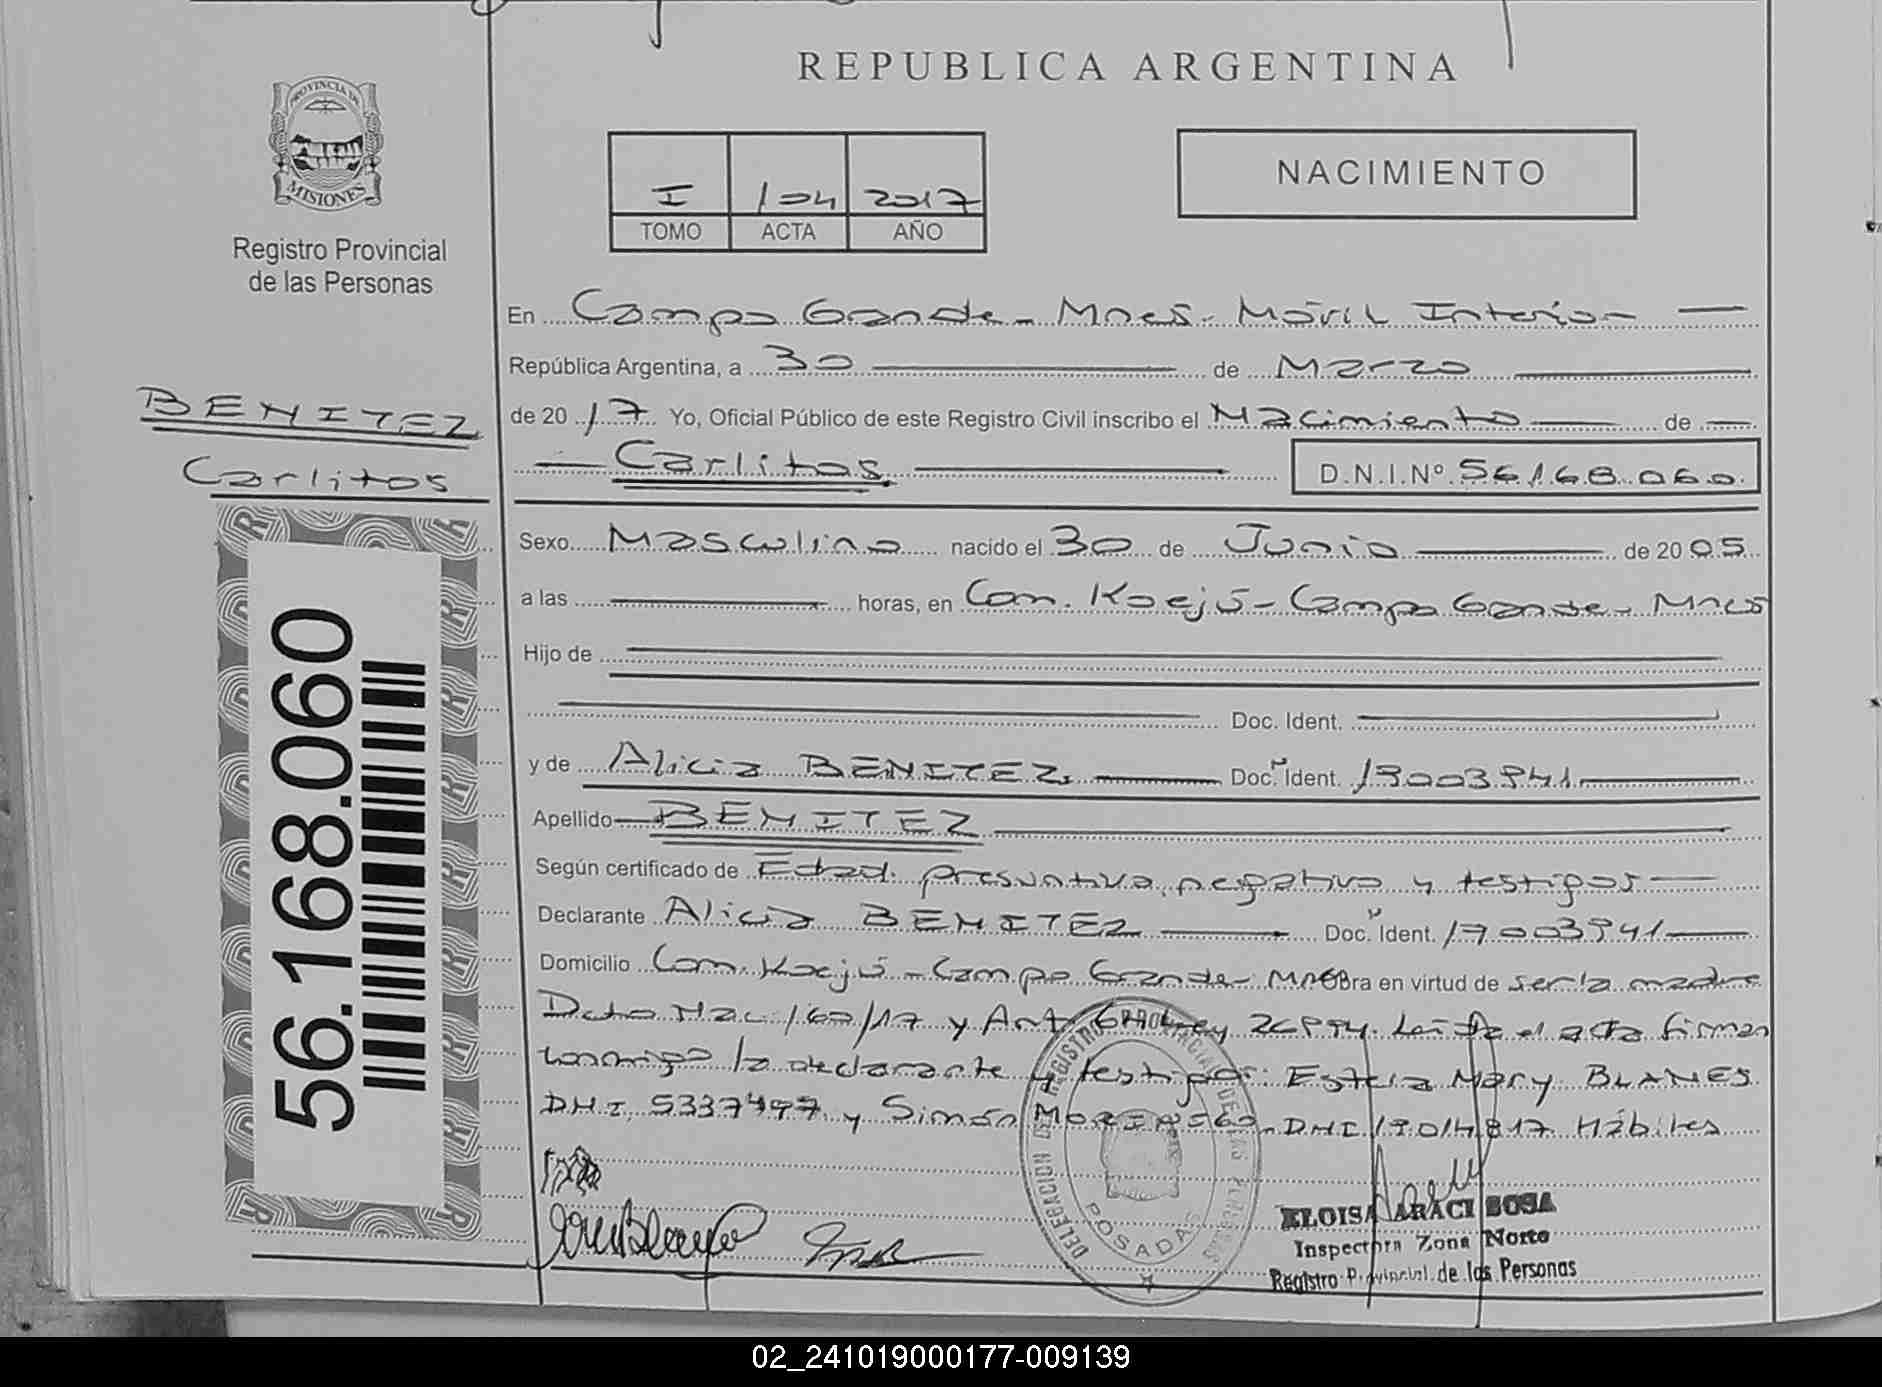 REPUBLICA ARGENTINA
PROVINCIA DE
MISIONES
Registro Provincial
de las Personas
I 104 2017
TOMO ACTA AÑO
NACIMIENTO
En Campo Grande - Mnes - Móvil Interior
República Argentina, a 30 de Marzo
de 2017 Yo, Oficial Público de este Registro Civil inscribo el Nacimiento de
Carlitos D.N.I.Nº 56.168.060
BENITEZ
Carlitos
56.168.060
Sexo Masculino nacido el 30 de Junio de 2005
a las horas, en Com. Kaejú - Campo Grande - Mnes
Hijo de
Doc. Ident.
y de Alicia BENITEZ Doc. Ident.
Apellido BENITEZ
Según certificado de Edad presuntiva, negativo y testigos
Declarante Alicia BENITEZ Doc. Ident.
Domicilio Com. Kaejú - Campo Grande - Mnes Obra en virtud de ser la madre
Dcto Nac. 160/17 y Art. Ley Leída el acta firman
conmigo la declarante y testigos: Estela Mary BLANES
DNI y Simón DNI Hábiles
DELEGACION DEL REGISTRO PROVINCIAL DE LAS PERSONAS
POSADAS
ELOISA ARACI SOSA
Inspectora Zona Norte
Registro Provincial de las Personas
02_241019000177-009139